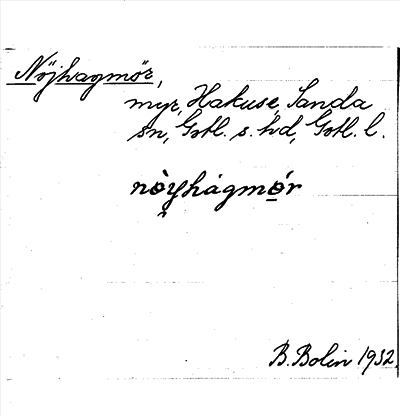 Nöjhagmör,
myr, Hakuse, Sanda
sn, Gotl. s. hd, Gotl. l.
nòy̯hágmǫ́r
B. Bolin 1932.